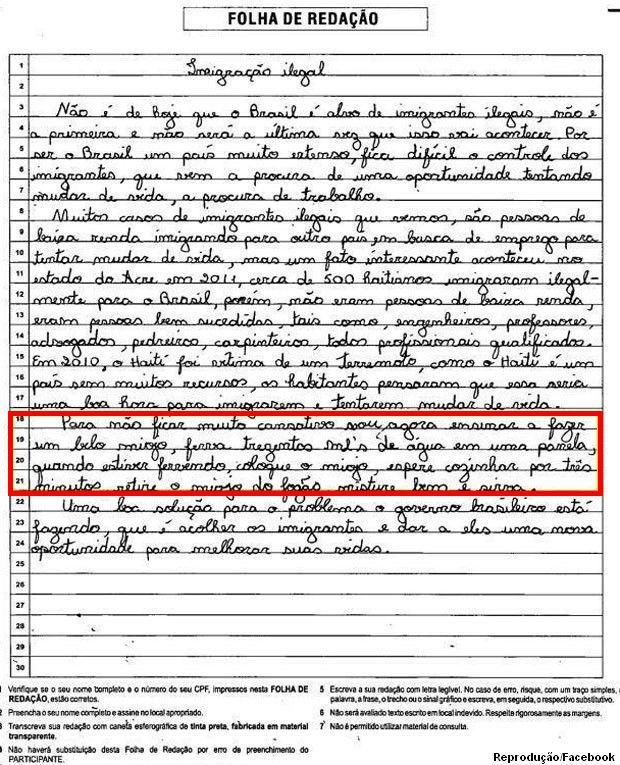 FOLHA DE REDAÇÃO
1 Imigração ilegal
2
3 Não é de hoje que o Brasil é alvo de imigrantes ilegais, não é
4 a primeira e não será a última vez que isso vai acontecer. Por
5 ser o Brasil um país muito extenso, fica difícil o controle dos
6 imigrantes, que vem a procura de uma oportunidade tentando
7 mudar de vida, a procura de trabalho.
8 Muitos casos de imigrantes ilegais que vemos, são pessoas de
9 baixa renda imigrando para outro país, em busca de emprego para
10 tentar mudar de vida, mas um fato interessante aconteceu no
11 estado do Acre em 2011, cerca de 500 haitianos imigraram ilegal-
12 mente para o Brasil, porém, não eram pessoas de baixa renda,
13 eram pessoas bem sucedidas, tais como, engenheiros, professores,
14 advogados, pedreiros, carpinteiros, todos profissionais qualificados.
15 Em 2010, o Haiti foi vítima de um terremoto, como o Haiti é um
16 país sem muitos recursos, os habitantes pensaram que essa seria
17 uma boa hora para imigrarem e tentarem mudar de vida.
18 Para não ficar muito cansativo, vou agora ensinar a fazer
19 um belo miojo, ferva trezentos ml's de água em uma panela,
20 quando estiver fervendo, coloque o miojo, espere cozinhar por três
21 minutos retire o miojo do fogão, misture bem e sirva.
22 Uma boa solução para o problema o governo brasileiro está
23 fazendo, que é acolher os imigrantes e dar a eles uma nova
24 oportunidade para melhorar suas vidas.
25
26
27
28
29
30
1 Verifique se o seu nome completo e o número do seu CPF, impressos nesta FOLHA DE
REDAÇÃO, estão corretos.
2 Preencha o seu nome completo e assine no local apropriado.
3 Transcreva sua redação com caneta esferográfica de tinta preta, fabricada em material
transparente.
Não haverá substituição desta Folha de Redação por erro de preenchimento do
PARTICIPANTE.
5 Escreva a sua redação com letra legível. No caso de erro, risque, com um traço simples, a
palavra, a frase, o trecho ou o sinal gráfico e escreva, em seguida, o respectivo substitutivo.
6 Não será avaliado texto escrito em local indevido. Respeite rigorosamente as margens.
7 Não é permitido utilizar material de consulta.
Reprodução/Facebook